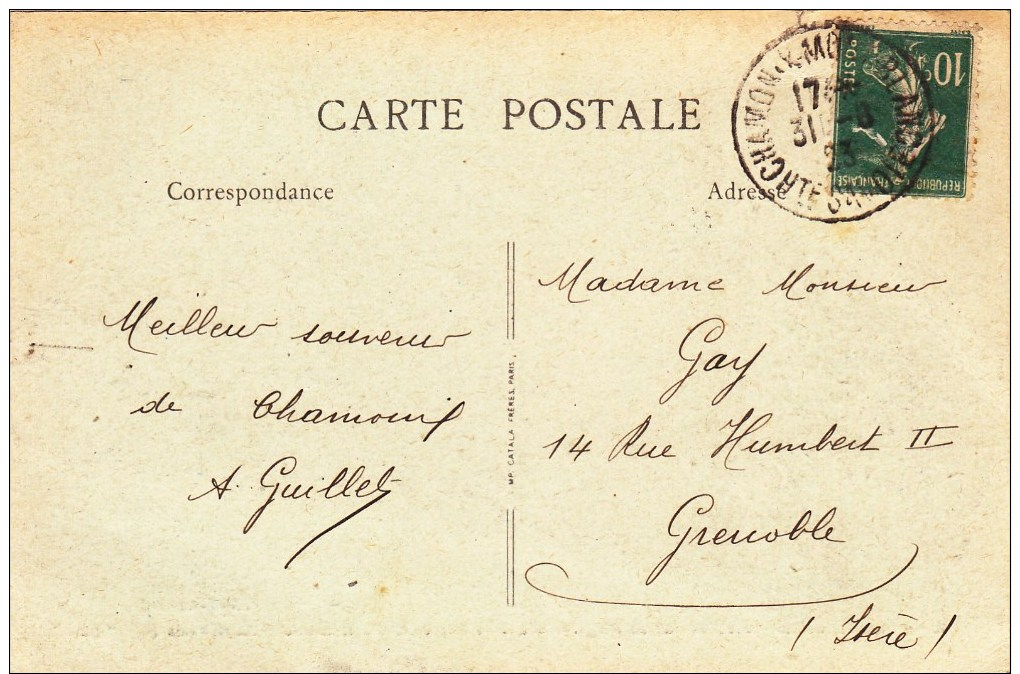 CARTE POSTALE
Correspondance
Adresse
Meilleur souvenir
de Chamonix
A. Guillet
Madame Monsieur
Gay
14 Rue Humbert II
Grenoble
(Isère)
IMP. CATALA FRÈRES, PARIS.
CHAMONIX-MONT-BLANC
HTE SAVOIE
31-8
23
10c
POSTES
REPUBLIQUE FRANÇAISE